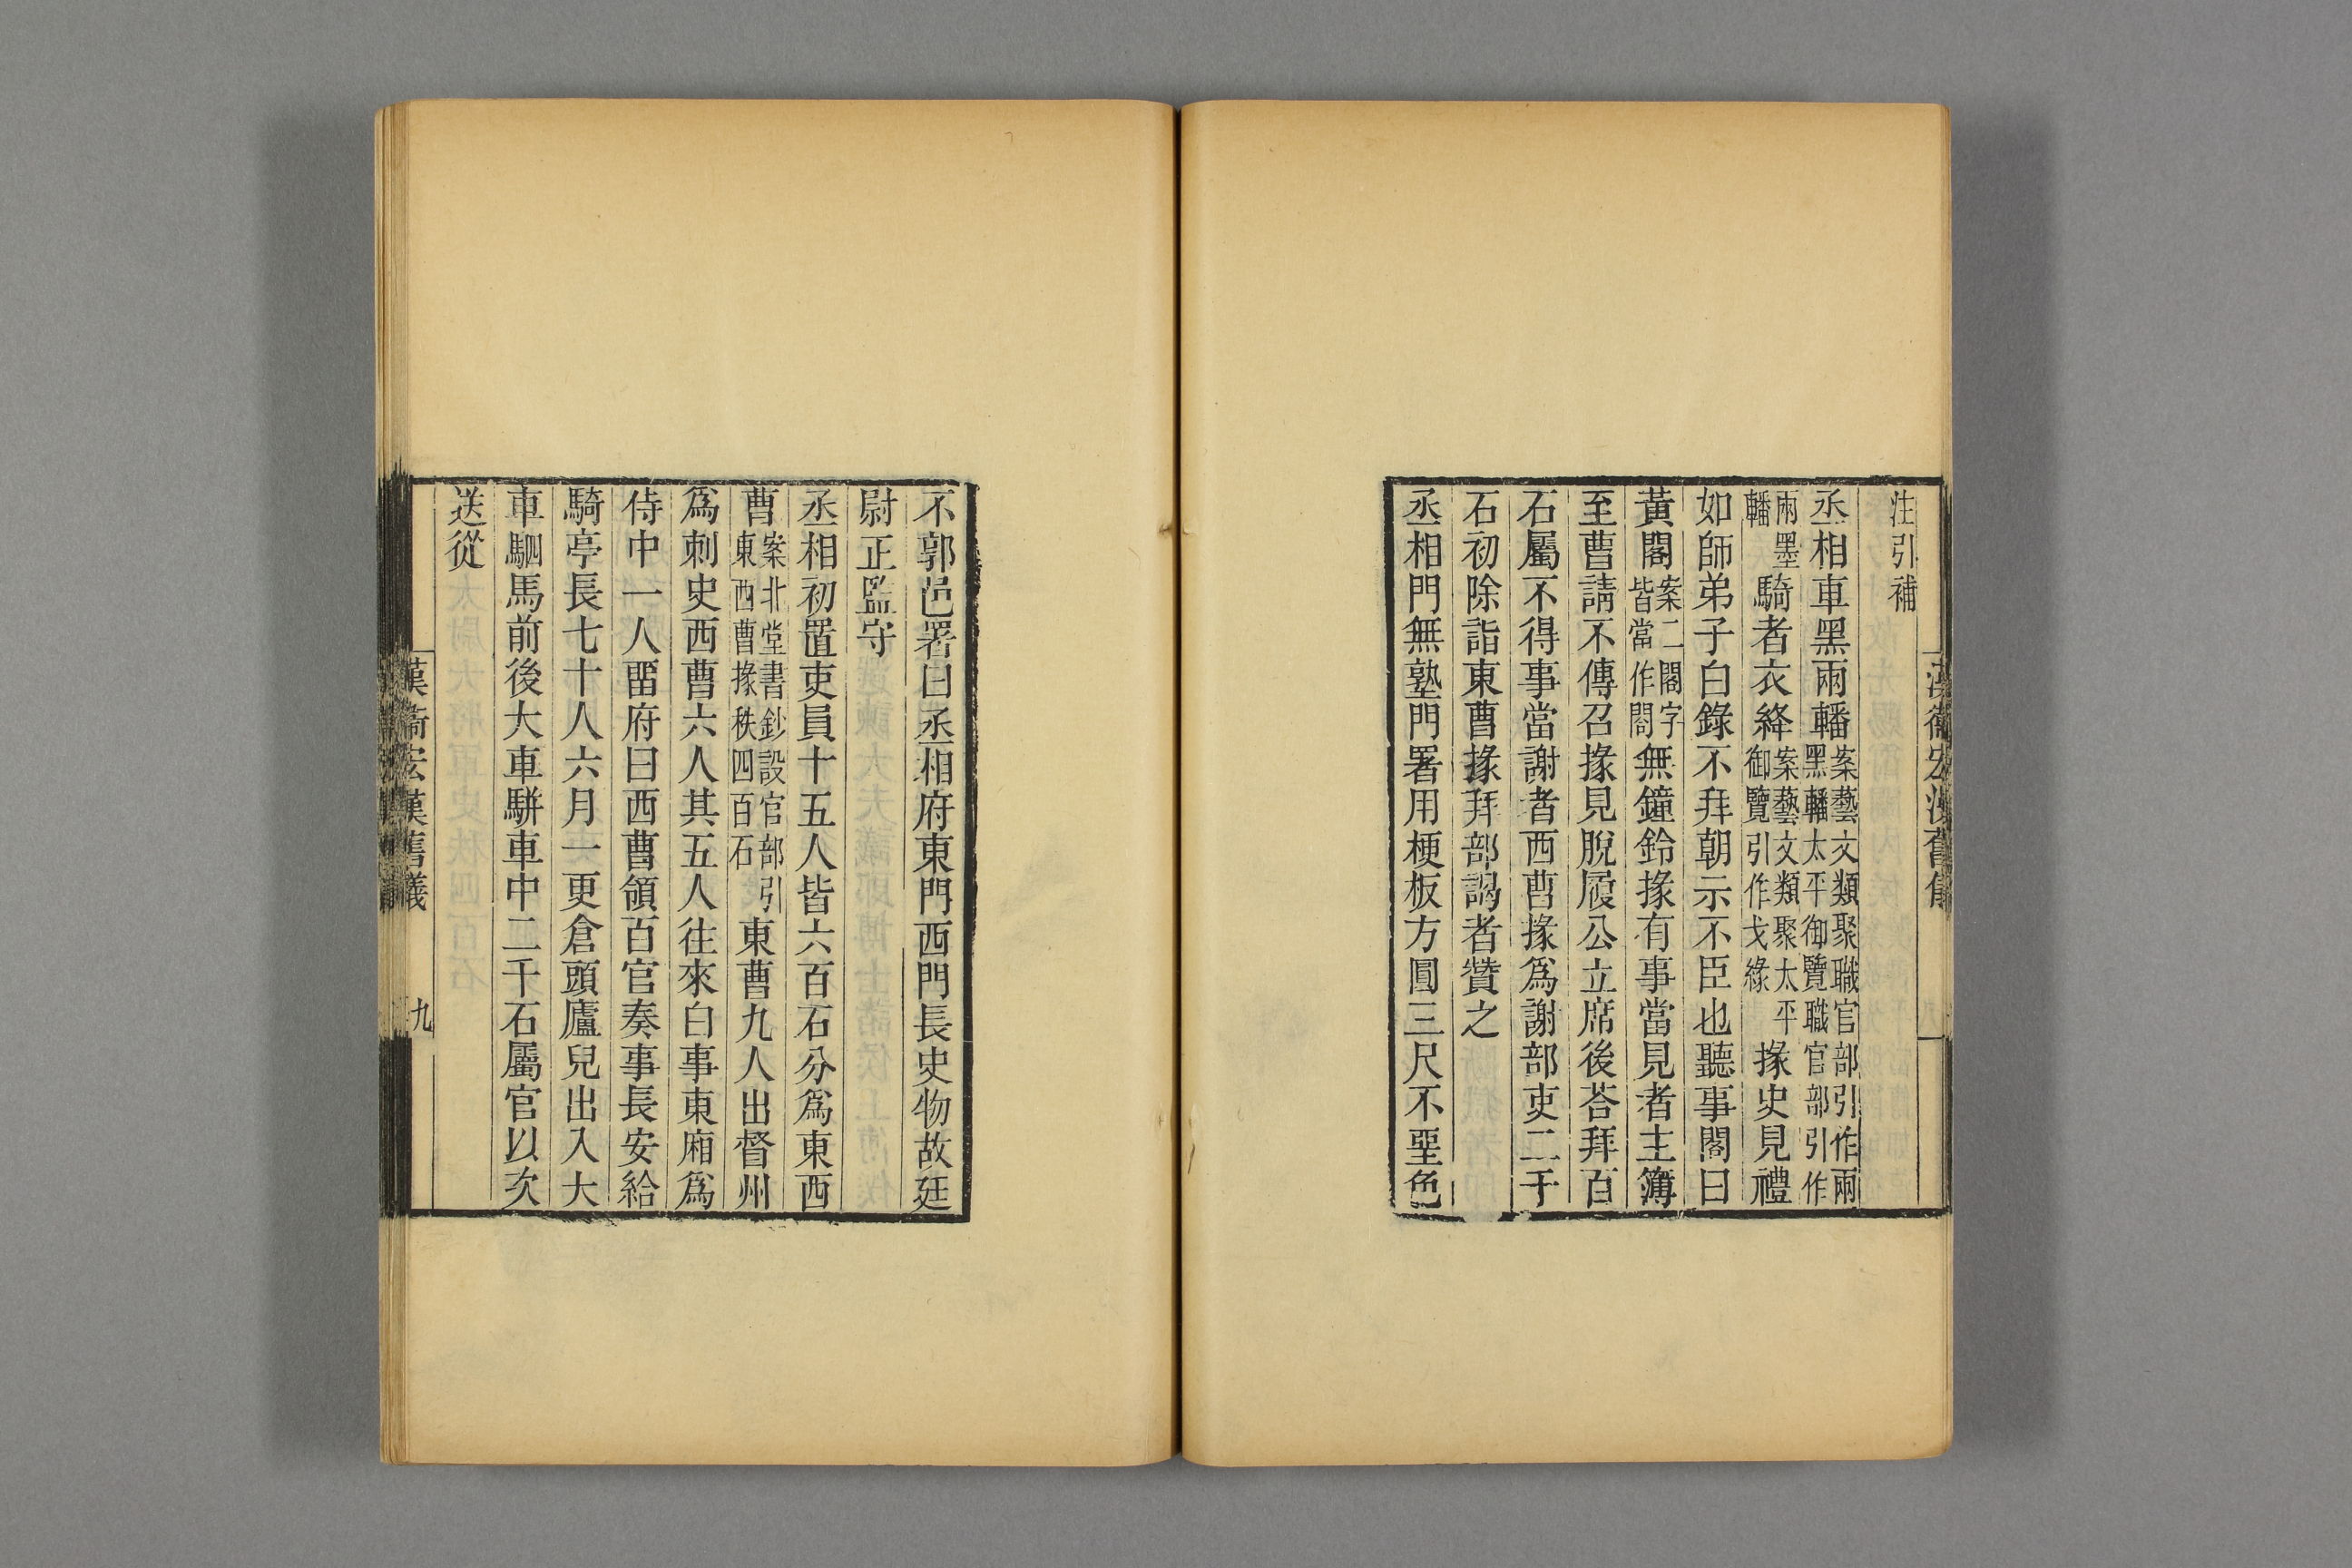 漢衞宏漢舊儀
注引補
丞相車黑兩轓案藝文類聚職官部引作兩黑轓太平御覽職官部引作
兩轓墨騎者衣絳案藝文類聚太平御覽引作戈緣掾史見禮
如師弟子白錄不拜朝示不臣也聽事閤曰
黃閤案二閣字皆當作閤無鐘鈴掾有事當見者主簿
至曹請不傳召掾見脫履公立席後荅拜百
石屬不得事當謝者西曹掾爲謝部吏二千
石初除詣東曹掾拜部謁者贊之
丞相門無塾門署用梗板方圓三尺不堊色
不郭邑署曰丞相府東門西門長史物故廷
尉正監守
丞相初置吏員十五人皆六百石分爲東西
曹案北堂書鈔設官部引東西曹掾秩四百石東曹九人出督州
爲刺史西曹六人其五人往來白事東廂爲
侍中一人畱府曰西曹領百官奏事長安給
騎亭長七十人六月一更倉頭廬兒出入大
車駟馬前後大車駢車中二千石屬官以次
送從
漢衞宏漢舊儀
九